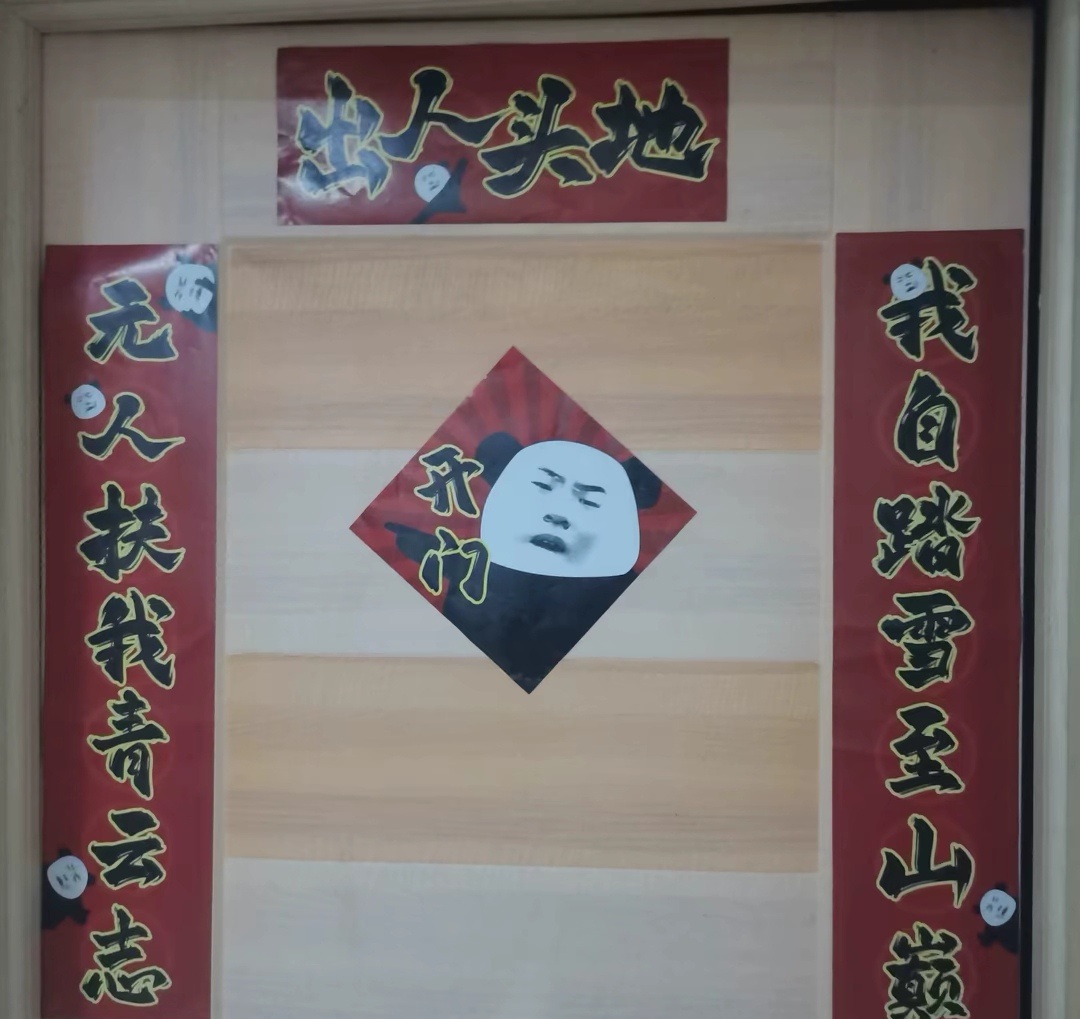 出人头地
元人扶我青云志
我自踏雪至山巅
开门